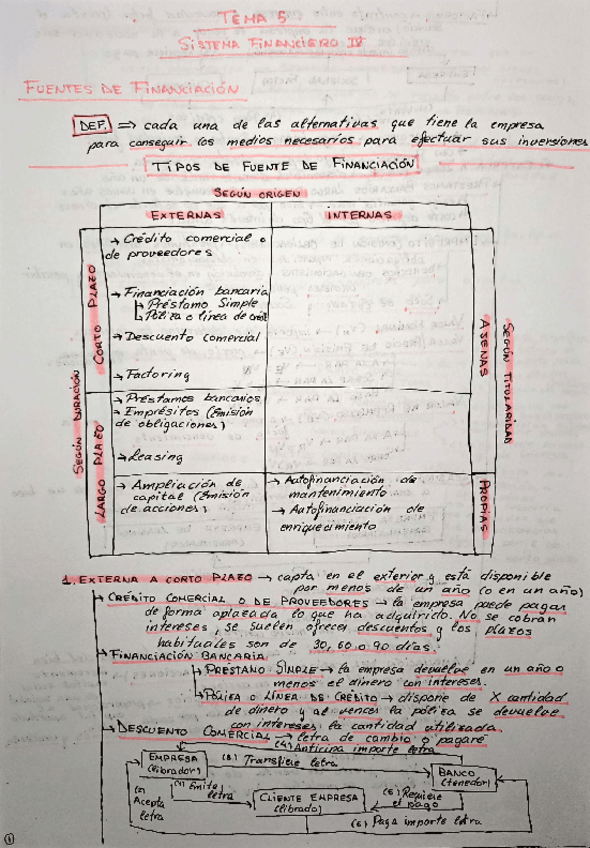 TEMA 5
SISTEMA FINANCIERO IV
FUENTES DE FINANCIACIÓN
DEF. => cada una de las alternativas que tiene la empresa
para conseguir los medios necesarios para efectuar sus inversiones
TIPOS DE FUENTE DE FINANCIACIÓN
SEGÚN ORIGEN
EXTERNAS
INTERNAS
SEGÚN DURACIÓN
CORTO PLAZO
→ Crédito comercial o
de proveedores
→ Financiación bancaria
↳ Préstamo Simple
↳ Póliza o línea de créd.
→ Descuento comercial
→ Factoring
LARGO PLAZO
→ Préstamos bancarios
→ Empréstitos (Emisión
de obligaciones)
→ Leasing
→ Ampliación de
capital (Emisión
de acciones)
→ Autofinanciación de
mantenimiento
→ Autofinanciación de
enriquecimiento
AJENAS
PROPIAS
SEGÚN TITULARIDAD
1. EXTERNA A CORTO PLAZO → capta en el exterior y está disponible
por menos de un año (o en un año)
→ CRÉDITO COMERCIAL O DE PROVEEDORES → la empresa puede pagar
de forma aplazada lo que ha adquirido. No se cobran
intereses, se suelen ofrecer descuentos y los plazos
habituales son de 30, 60 o 90 días.
→ FINANCIACIÓN BANCARIA
→ PRÉSTAMO SIMPLE → la empresa devuelve en un año o
menos el dinero con intereses.
→ PÓLIZA O LÍNEA DE CRÉDITO → dispone de X cantidad
de dinero y al vencer la póliza se devuelve
con intereses la cantidad utilizada.
→ DESCUENTO COMERCIAL → letra de cambio o pagaré
(4) Anticipa importe letra
EMPRESA
(librador)
(3) Transfiere letra
BANCO
(tenedor)
(1) Emite
letra
(2)
Acepta
letra
CLIENTE EMPRESA
(librado)
(5) Requiere
el pago
(6) Paga importe letra
1